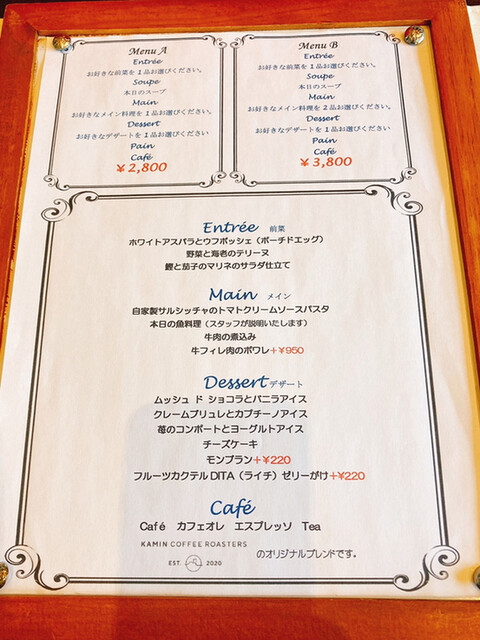 Menu A
Entrée
お好きな前菜を1品お選びください。
Soupe
本日のスープ
Main
お好きなメイン料理を1品お選びください。
Dessert
お好きなデザートを1品お選びください
Pain
Café
¥2,800
Menu B
Entrée
お好きな前菜を1品お選びください。
Soupe
本日のスープ
Main
お好きなメイン料理を2品お選びください。
Dessert
お好きなデザートを1品お選びください
Pain
Café
¥3,800
Entrée 前菜
ホワイトアスパラとウフポッシェ(ポーチドエッグ)
野菜と海老のテリーヌ
鰹と茄子のマリネのサラダ仕立て
Main メイン
自家製サルシッチャのトマトクリームソースパスタ
本日の魚料理(スタッフが説明いたします)
牛肉の煮込み
牛フィレ肉のポワレ+¥950
Dessert デザート
ムッシュ ド ショコラとバニラアイス
クレームブリュレとカプチーノアイス
苺のコンポートとヨーグルトアイス
チーズケーキ
モンブラン+¥220
フルーツカクテルDITA(ライチ)ゼリーがけ+¥220
Café
Café カフェオレ エスプレッソ Tea
KAMIN COFFEE ROASTERS
EST. 2020
のオリジナルブレンドです。